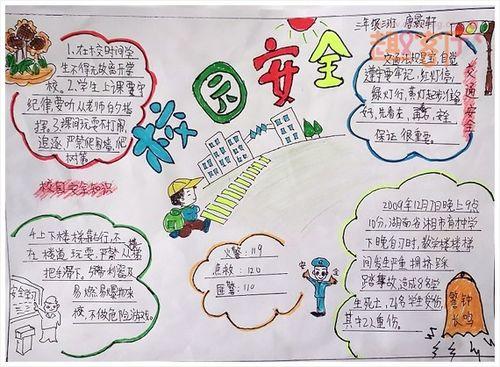 三年级二班 唐韵轩
校园安全
1.在校时间学
生不得无故离开学
校。2.学生上课要守
纪律,要听从老师的指
挥。3.课间玩耍不打闹,
追逐,严禁爬围墙,爬
树等。
校园安全知识
交通法规是宝,自觉
遵守要牢记,红灯停,
绿灯行,黄灯
好,先看左,再看右,安全
保证很重要。
交通安全
4.上下楼梯靠右行,不
在楼道玩耍,严禁从楼
把手滑下,
易燃易爆物来
校,不做危险游戏。
安全学习
火警:119
急救:120
匪警:110
2009年12月7日晚上9点
10分,湖南省湘乡市育才中学
下晚自习时,教学楼楼梯
间发生严重拥挤踩
踏事故,造成8名学
生死亡,26名学生受伤,
其中2人重伤。
警钟
长鸣